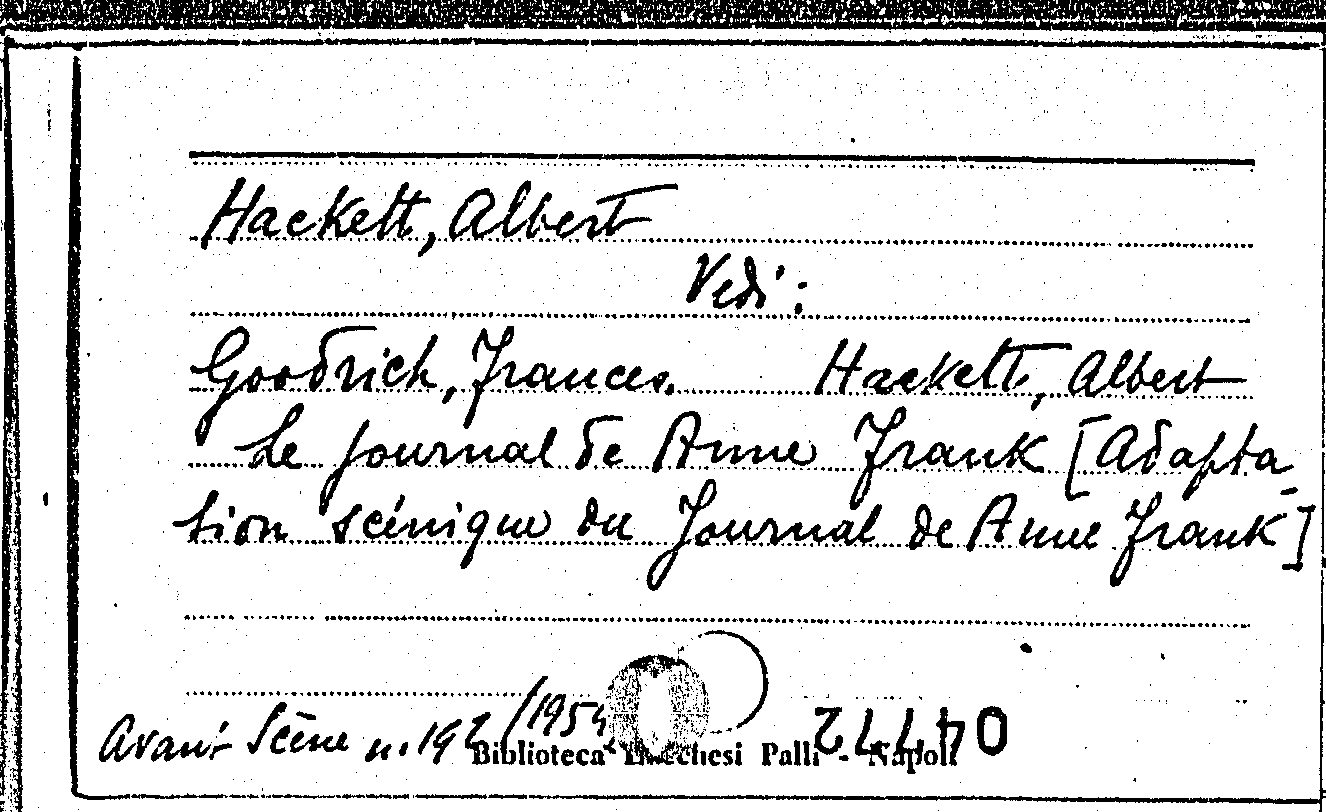 Hackett, Albert
Vedi:
Goodrich, Frances. Hackett, Albert
Le Journal de Anne Frank [Adapta-
tion scénique du Journal de Anne Frank]
Avant Scène n. 192 /1959
Biblioteca Lucchesi Palli - Napoli
04772